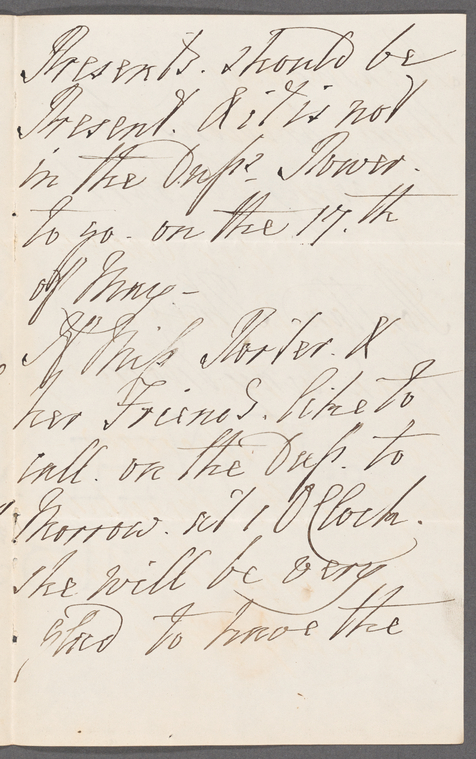 Presents. should be
Present. & it is not
in the Duss's Power.
to go. on the 17.th
of May -
If Miss Porter. &
her Friend. like to
call. on the Duss. to
Morrow. at 1 O Clock.
she will be very
glad to have the